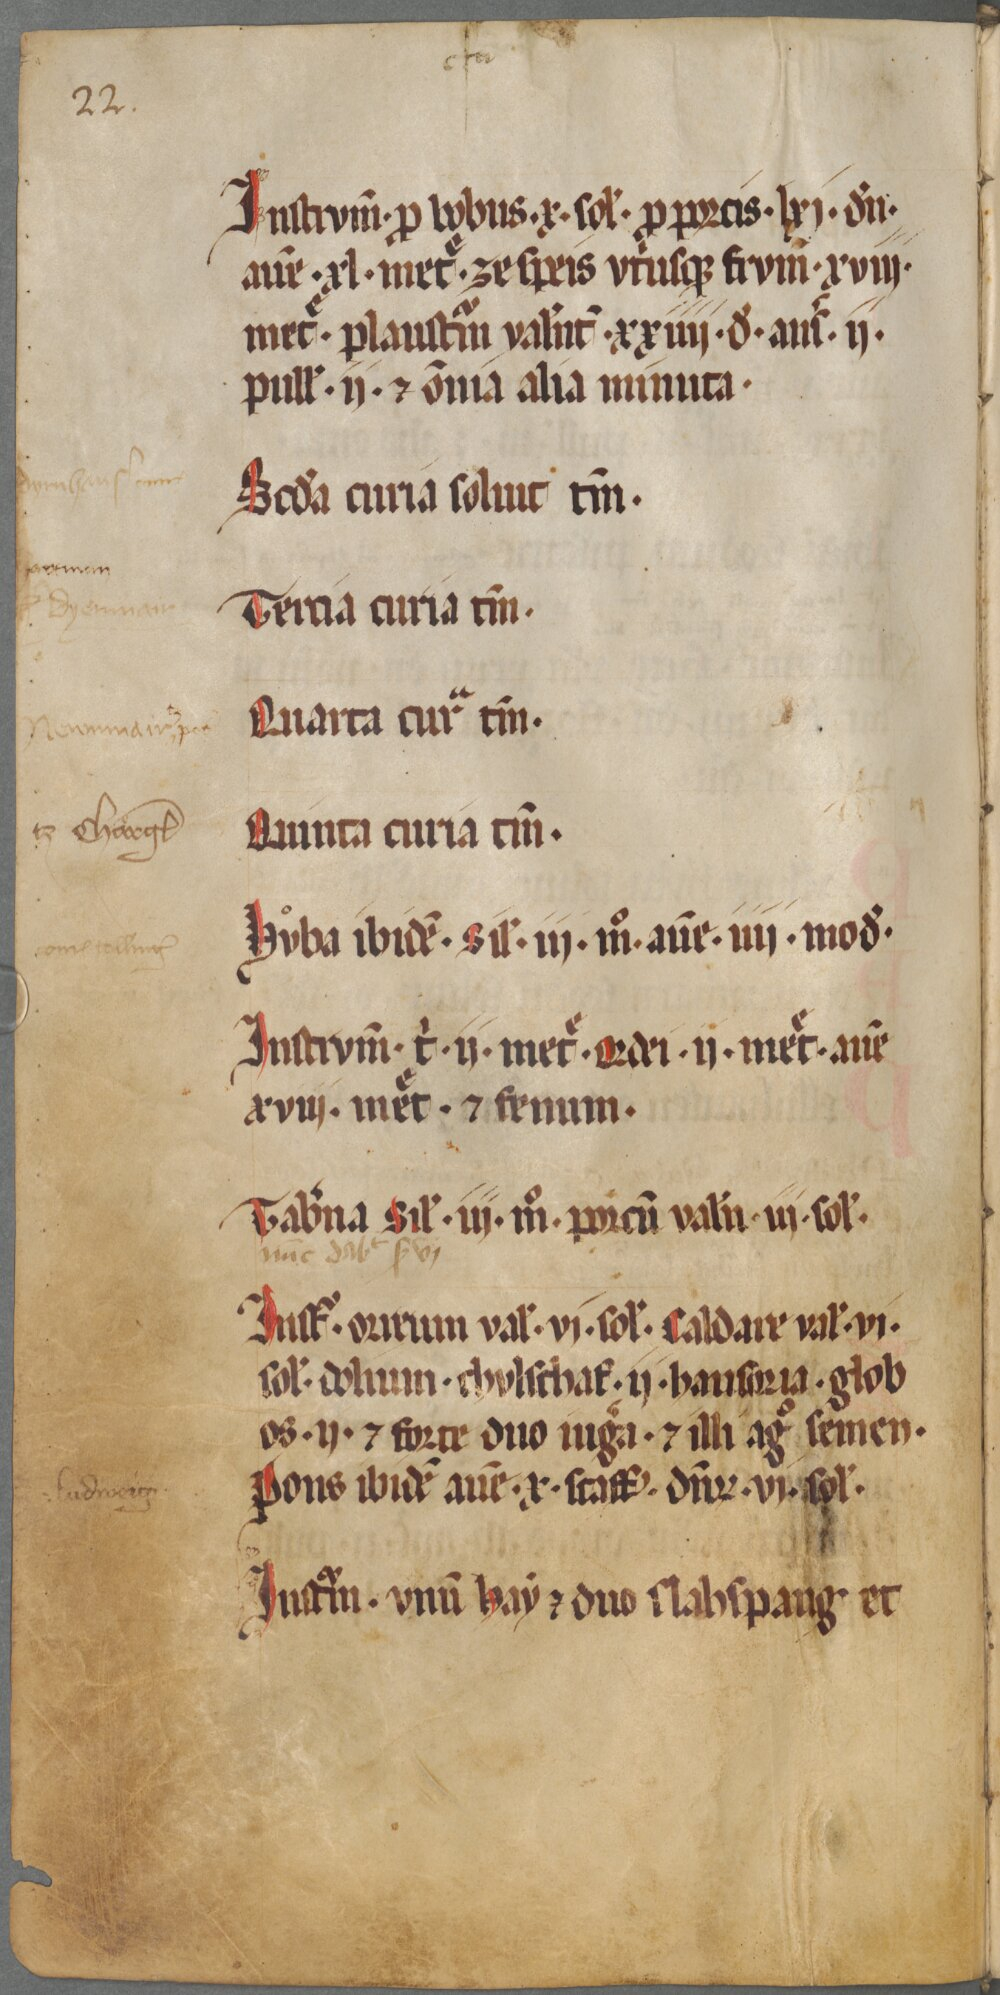 22.
Instrvm̄· p bobus·x· sol̄· p porcis·lxj·dn̄·
aūe·xl·met̄ᵉ·ze speis vtiusqꝫ frvm̄·xviij·
met̄ᵉ· plaustm̄ valn̄t·xxiiij·d̄·aus̄·ij·
pull̄·ij·⁊ om̄ia alia minuta·
Scd̄a curia soluit tm̄·
Tercia curia tm̄·
Quarta curᵃ tm̄·
tz Chorgl̄
Quinta curia tm̄·
Hůba ibidē· Sil̄·iij·mͦ·aūe·iiij·mod̄·
Instrvm̄· t̄·ij·met̄ᵉ·ordei·ij·met̄ᵉ·aūe
xviij·met̄ᵉ·⁊ fenum·
Tabn̄a Sil̄·iij·mͦ·porcū valn̄·iij·sol̄·
nūc dabᵗ vj
Inst̄· orreum val̄·vj·sol̄· Caldare val̄·vj·
sol̄·dolium·chvlschaf·ij·hausoria·glob
os·ij·⁊ forte duo iuga·⁊ illi agͦ semen·
Ludweig
Pons ibidē aūe·x·scaff̄·dn̄r·vj·sol̄·
Instm̄· vnū hay ⁊ duo slahspang et